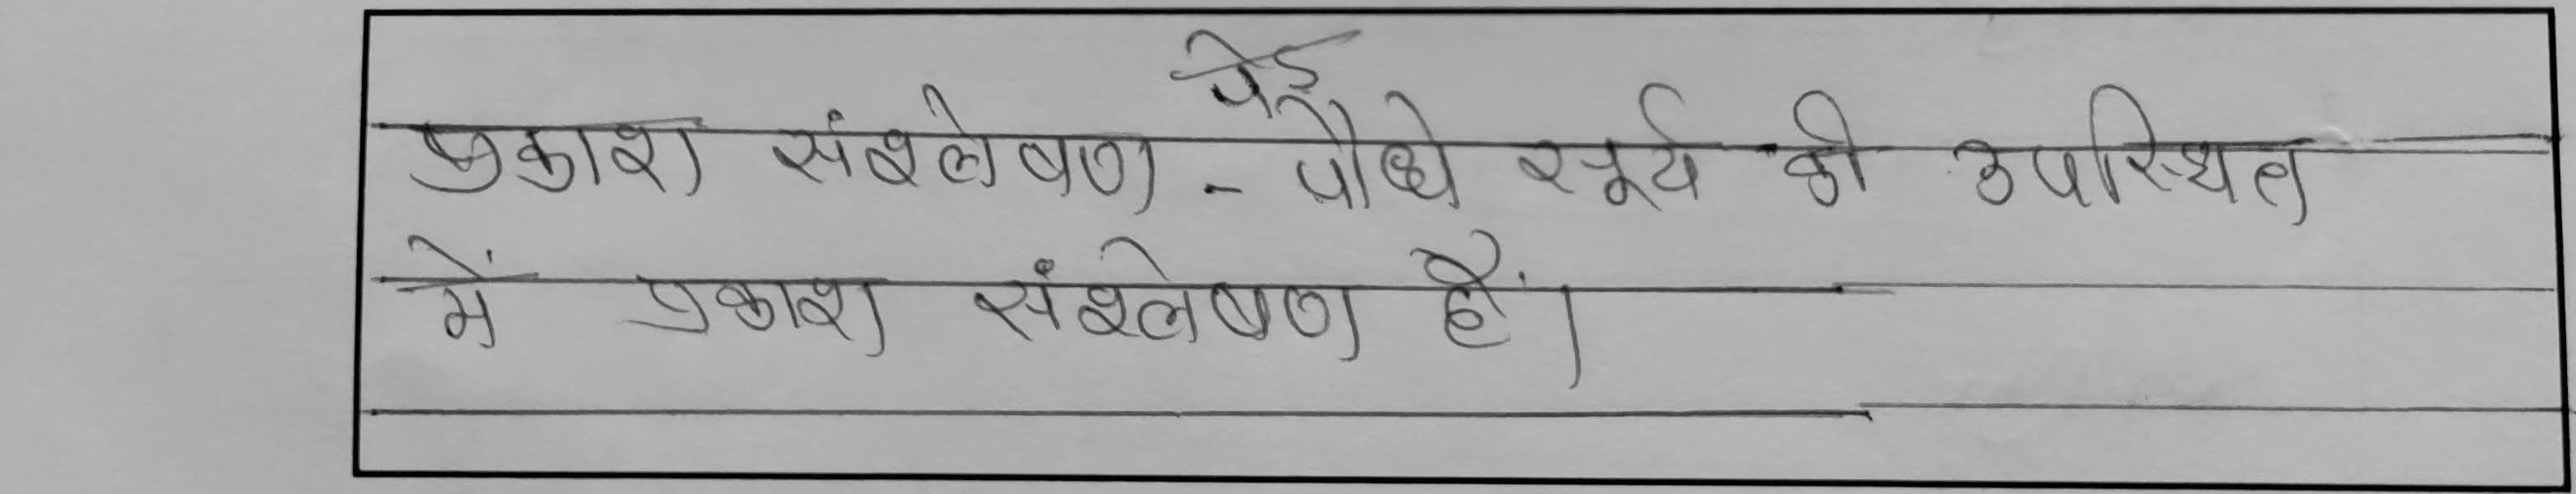 पेड़
प्रकाश संश्लेषण - पौधे सूर्य की उपस्थित
में प्रकाश संश्लेषण हैं।